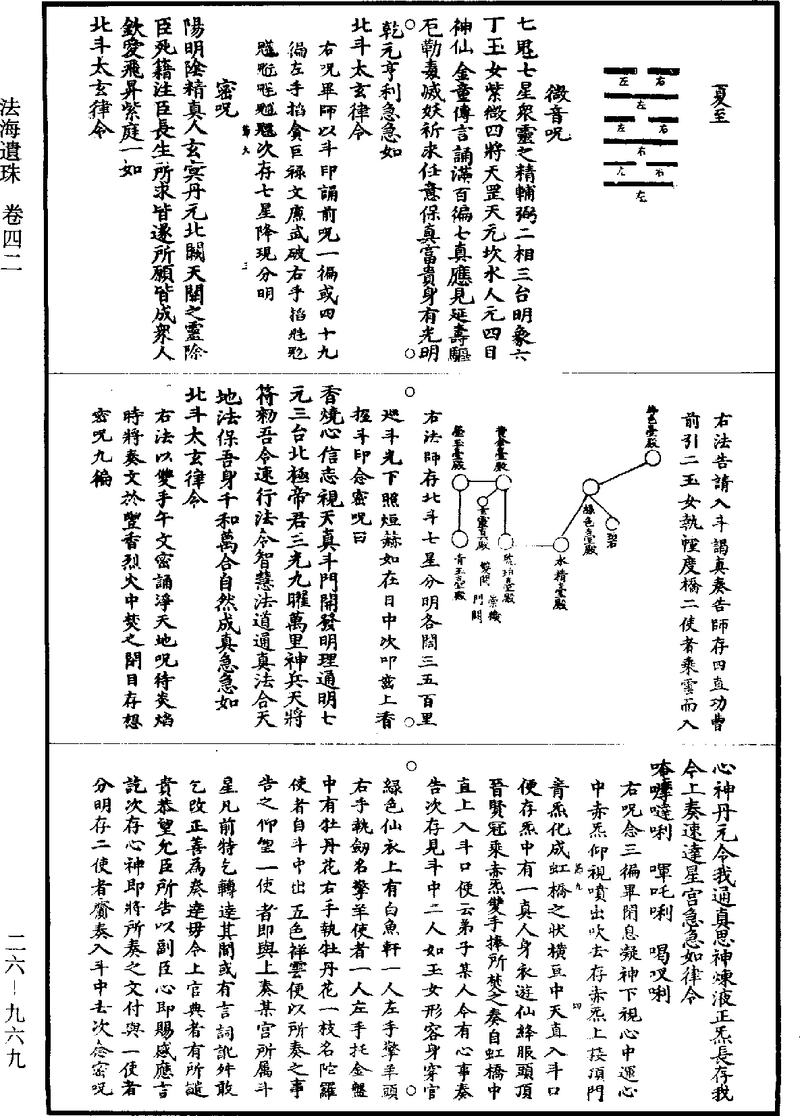 法海遺珠 卷四二
二六—九六九
夏至
右
左
左
右
左
右
右
左
左
微音呪
七冠七星衆靈之精輔弼二相三台明象六
丁玉女紫微四將天罡天元坎水人元四目
神仙金童傳言誦滿百徧七真應見延壽驅
厄勒毒滅妖祈求任意保真富貴身有光明
乾元亨利急急如
北斗太玄律令
右呪畢師以斗印誦前呪一徧或四十九
徧左手掐貪巨祿文廉武破右手掐魁
次存七星降現分明
第九
三
密呪
陽明陰精真人玄冥丹元北關天關之靈除
臣死籍注臣長生所求皆遂所願皆成衆人
欽愛飛昇紫庭一如
北斗太玄律令
右法告請入斗謁真奏告師存四直功曹
前引二玉女執幢度橋二使者乘雲而入
絳色臺殿
綠色臺殿
水精臺殿
琥珀臺殿
黃金臺殿
青玉臺殿
雙開
門闕
右法師存北斗七星分明各闊三五百里
巡斗光下照烜赫如在日中次叩齒上香
捏斗印念密呪曰
香燒心信志視天真斗門開發明理通明七
元三台北極帝君三光九曜萬里神兵天將
符勑吾令速行法令智慧法道通真法合天
地法保吾身千和萬合自然成真急急如
北斗太玄律令
右法以雙手午文密誦淨天地呪待炎焰
時將奏文於豐香烈火中焚之閉目存想
密呪九徧
心神丹元令我通真思神煉液正炁長存我
今上奏速達星宮急急如律令
唵噠唎 嗶吒唎 喝㕚唎
右呪念三徧畢閉息凝神下視心中運心
中赤炁仰視噴出吹去存赤炁上接頂門
第九
四
音炁化成虹橋之狀橫亘中天直入斗口
便存炁中有一真人身衣遊仙絳服頭頂
晉賢冠乘赤炁雙手捧所焚之奏自虹橋中
直上入斗口便云弟子某人今有心事奏
告次存見斗中二人如玉女形容身穿官
綠色仙衣上有白魚軒一人左手擎羊頭
右手執劒名擎羊使者一人左手托金盤
中有牡丹花右手執牡丹花一枝名陀羅
使者自斗中出五色祥雲便以所奏之事
告之仰望一使者即與上奏某宮所屬斗
星凡前特乞轉達其間或有言詞訛舛敢
乞改正善為奏達毋令上官典者有所譴
責恭望允臣所告以副臣心即賜感應言
訖次存心神即將所奏之文付與一使者
分明存二使者齎奏入斗中去次念密呪